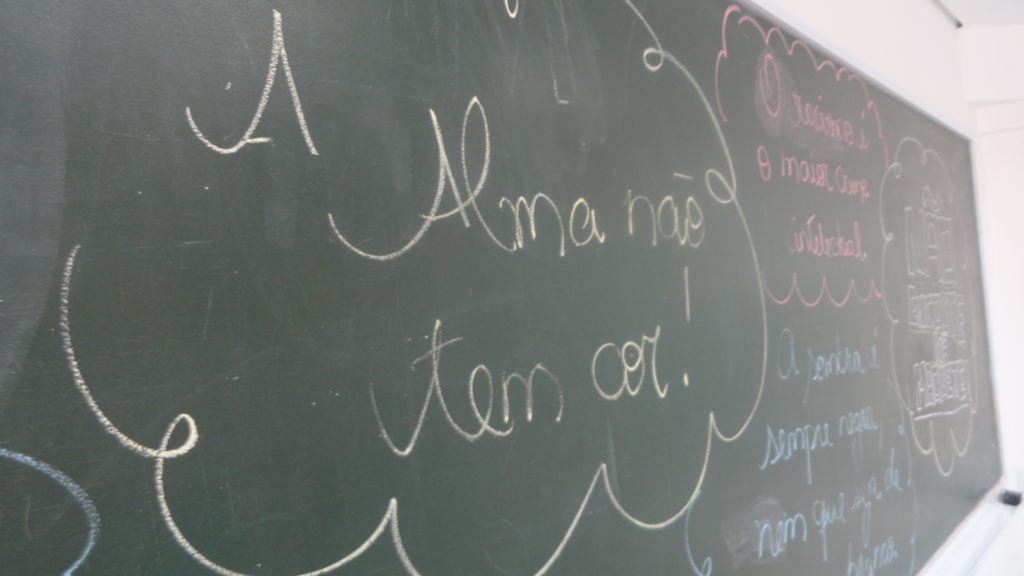 A
Alma não
tem cor!
O racismo é
o maior crime
intelectual.
A sombra é
sempre negra,
nem que seja de